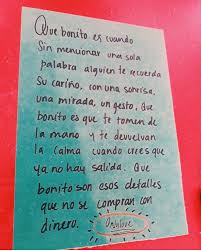 Que bonito es cuando
Sin mencionar una sola
palabra alguien te recuerda
Su cariño, con una sonrisa,
una mirada, un gesto, Que
bonito es que te tomen de
la mano y te devuelvan
la calma cuando crees que
ya no hay salida. Que
bonito son esos detalles
que no se compran con
dinero.